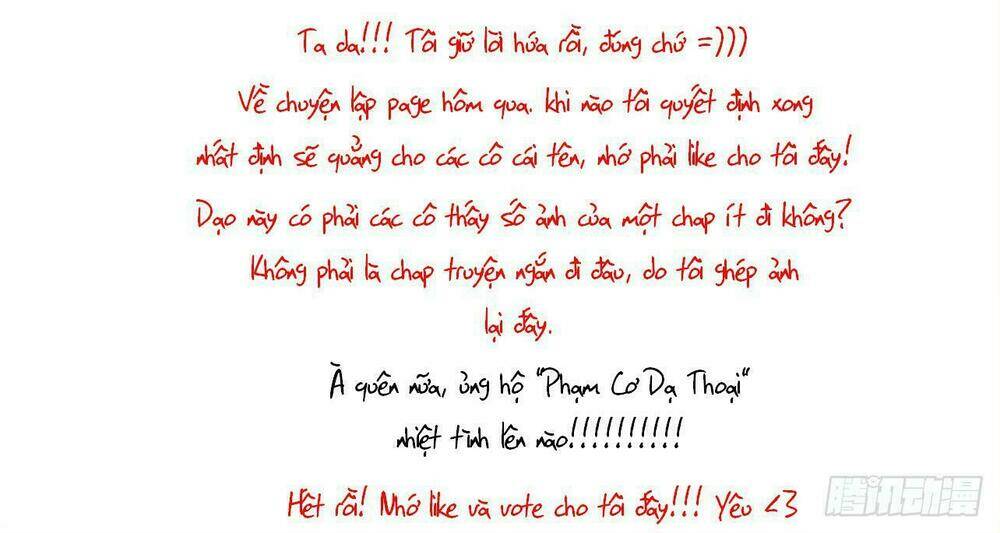 Ta da!!! Tôi giữ lời hứa rồi, đúng chứ =)))
Về chuyện lập page hôm qua. khi nào tôi quyết định xong
nhất định sẽ quảng cho các cô cái tên, nhớ phải like cho tôi đấy!
Dạo này có phải các cô thấy số ảnh của một chap ít đi không?
Không phải là chap truyện ngắn đi đâu, do tôi ghép ảnh
lại đấy.
À quên nữa, ủng hộ "Phạm Cơ Dạ Thoại"
nhiệt tình lên nào!!!!!!!!!!
Hết rồi! Nhớ like và vote cho tôi đấy!!! Yêu <3
腾讯动漫